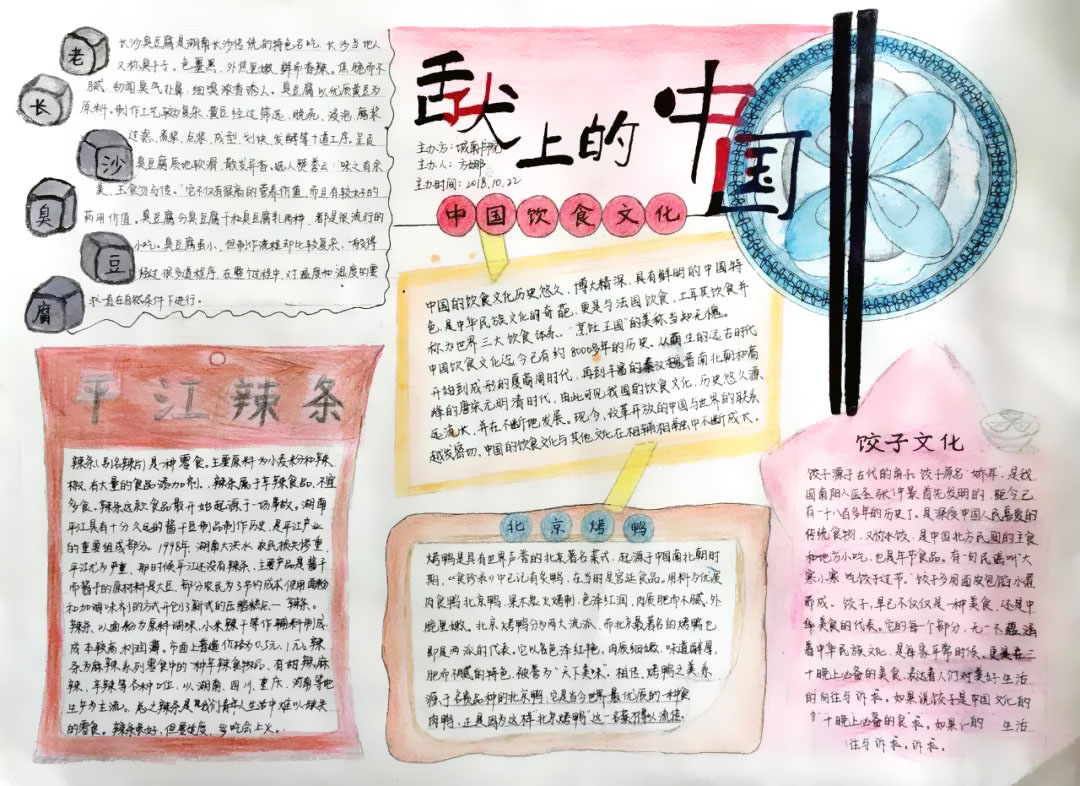 舌尖上的中国
主办方:城南书院
主办人:方娜
主办时间:2018.10.22
中国饮食文化
老长沙臭豆腐
长沙臭豆腐是湖南长沙传统的特色名吃,长沙当地人
又称臭干子。色墨黑,外焦里嫩,鲜而香辣。焦脆而不
腻、初闻臭气扑鼻,细嗅浓香诱人。臭豆腐以优质黄豆为
原料。制作工艺较为复杂,黄豆经过筛选、脱壳、浸泡、磨浆
过滤、煮浆、点浆、成型、划块、发酵等十道工序。呈
臭豆腐质地软滑,散发异香。
美、玉食勿与传。"它不仅有很高的营养价值,而且有较好的
药用价值。臭豆腐分臭豆腐干和臭豆腐乳两种,都是很流行的
小吃。臭豆腐虽小,但制作流程却比较复杂,一般得
经过很多道程序,在整个过程中,对温度和湿度的要
求一直在自然条件下进行。
中国的饮食文化历史悠久,博大精深,具有鲜明的中国特
色,是中华民族文化的奇葩,更是与法国饮食、土耳其饮食并
称为世界三大饮食体系。"烹饪王国"的美称当知无愧。
中国饮食文化迄今已有约8000多年的历史。从萌生的远古时代
开始到成形的夏商周时代,再到丰富的秦汉魏晋南北朝和高
峰的唐宋元明清时代,由此可见我国的饮食文化,历史悠久源
远流长,并在不断地发展。现今,改革开放的中国与世界的联系
越发密切、中国的饮食文化与其他文化在相辅相融中不断成大。
平江辣条
辣条(别名辣片)是一种零食。主要原料为小麦粉和辣
椒,有大量的食品添加剂。辣条属于辛辣食品,不宜
多食。辣条这款食品散开始起源于一场事故。湖南
平江具有十分久远的酱干豆制品制作历史,是平江产业
的重要组成部分。1998年,湖南大洪水,农民损失惨重,
平江尤为严重,那时候平江还没有辣条,主要产品是酱干
而酱干的原材料是大豆,部分农民为了节约成本使用面粉
和加调味剂的方式开创了新式的压缩糕点—辣条。
辣条,以面粉为原料调味,小米辣干等作辅料制成,
成本较高,利润薄。市面上普遍价格为0.5元、1元。辣
条为麻辣系列零食中的一种年辣食物,有甜辣、麻
辣、年辣等各种口位,以湖南、四川、重庆、河南等地
生午为主流。总之辣条是我们青年人生活中难以辣
的零食。辣条虽好,但要适度,多吃会上火。
北京烤鸭
烤鸭是具有世界声誉的北京著名菜式,起源于中国南北朝时
期,《食珍录》中已记有炙鸭,在当时是宫廷食品。用料为优质
肉食鸭北京鸭,果木炭火烤制,色泽红润,肉质肥而不腻,外
脆里嫩。北京烤鸭分为两大流派,而北京最著名的烤鸭也
即是两派的代表。它以色泽红艳,肉质细嫩,味道醇厚,
肥而不腻的特色,被誉为"天下美味"。相信,烤鸭之美系
源于名贵品种的北京鸭,它是当今世界最优质的一种食
肉鸭,正是因为这样"北京烤鸭"这一名菜得以流传。
饺子文化
饺子源于古代的角子。饺子原名"娇耳",是我
国南阳人医圣张仲景首先发明的,距今已
有一千八百多年的历史了。是深受中国人民喜爱的
传统食物,又称水饺,是中国北方民间的主食
和地方小吃,也是年节食品。有一句民谣叫"大
寒小寒,吃饺子过节。"饺子多用面皮包馅水煮
而成。饺子,早已不仅仅是一种美食,还是中
华美食的代表。它的每个部分,无一不蕴涵
着中华民族文化,是每家年常时候,更是在三
十晚上必备的美食,表达着人们对美好生活
的向往与诉求。如果说饺子是中国文化的
十晚上必备的美食。如果 的 生活
往与诉求。诉求。